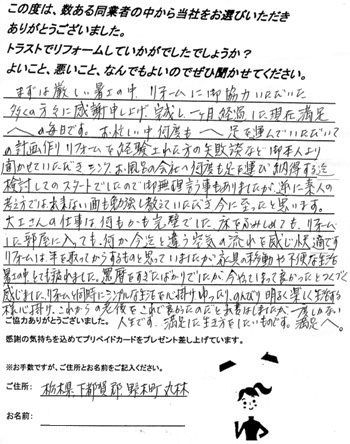 この度は、数ある同業者の中から当社をお選びいただき
ありがとうございました。
トラストでリフォームしていかがでしたでしょうか?
よいこと、悪いこと、なんでもよいのでぜひ聞かせてください。
まずは厳しい暑さの中 リフォームに御協力いただいた
多くの方々に感謝申し上げ、完成し一ヶ月経過した現在満足
への毎日です。お忙しい中何度も へ足を運んでいただいて
の計画作り リフォームを経験された方の失敗談など御本人より
聞かせていただき キッチン、お風呂の会社の何度も足を運び 納得する迄
検討してのスタートでしたので御無理言う事もありましたが、逆に素人の
考え方では出来ない面も勉強し教えていただき今に至ったと思います。
大工さんの仕事は何もかも完璧でした。床をふみしめても、リフォーム
した部屋に入っても、何か今迄と違う空気の流れを感じ快適です
リフォームは年を取ってからするものと思っていましたが 家具の移動や不便な生活
暑さの中とても疲れました。還暦をすぎたばかりでしたが、今やっていて良かったとつくづく
感じました。リフォームと同時にシンプルな生活を心掛け ゆったり、のんびり 明るく楽しく生活する
様心掛け、これからの老後をこれで良かったのだと
ご協力ありがとうございました。 人生です。満足した生き方をしたいものです。満足へ。
感謝の気持ちを込めてプリペイドカードをプレゼント差し上げています。
※お手数ですが、ご住所とお名前をご記入ください。
ご住所: 栃木県下都賀郡野木町丸林
お名前: